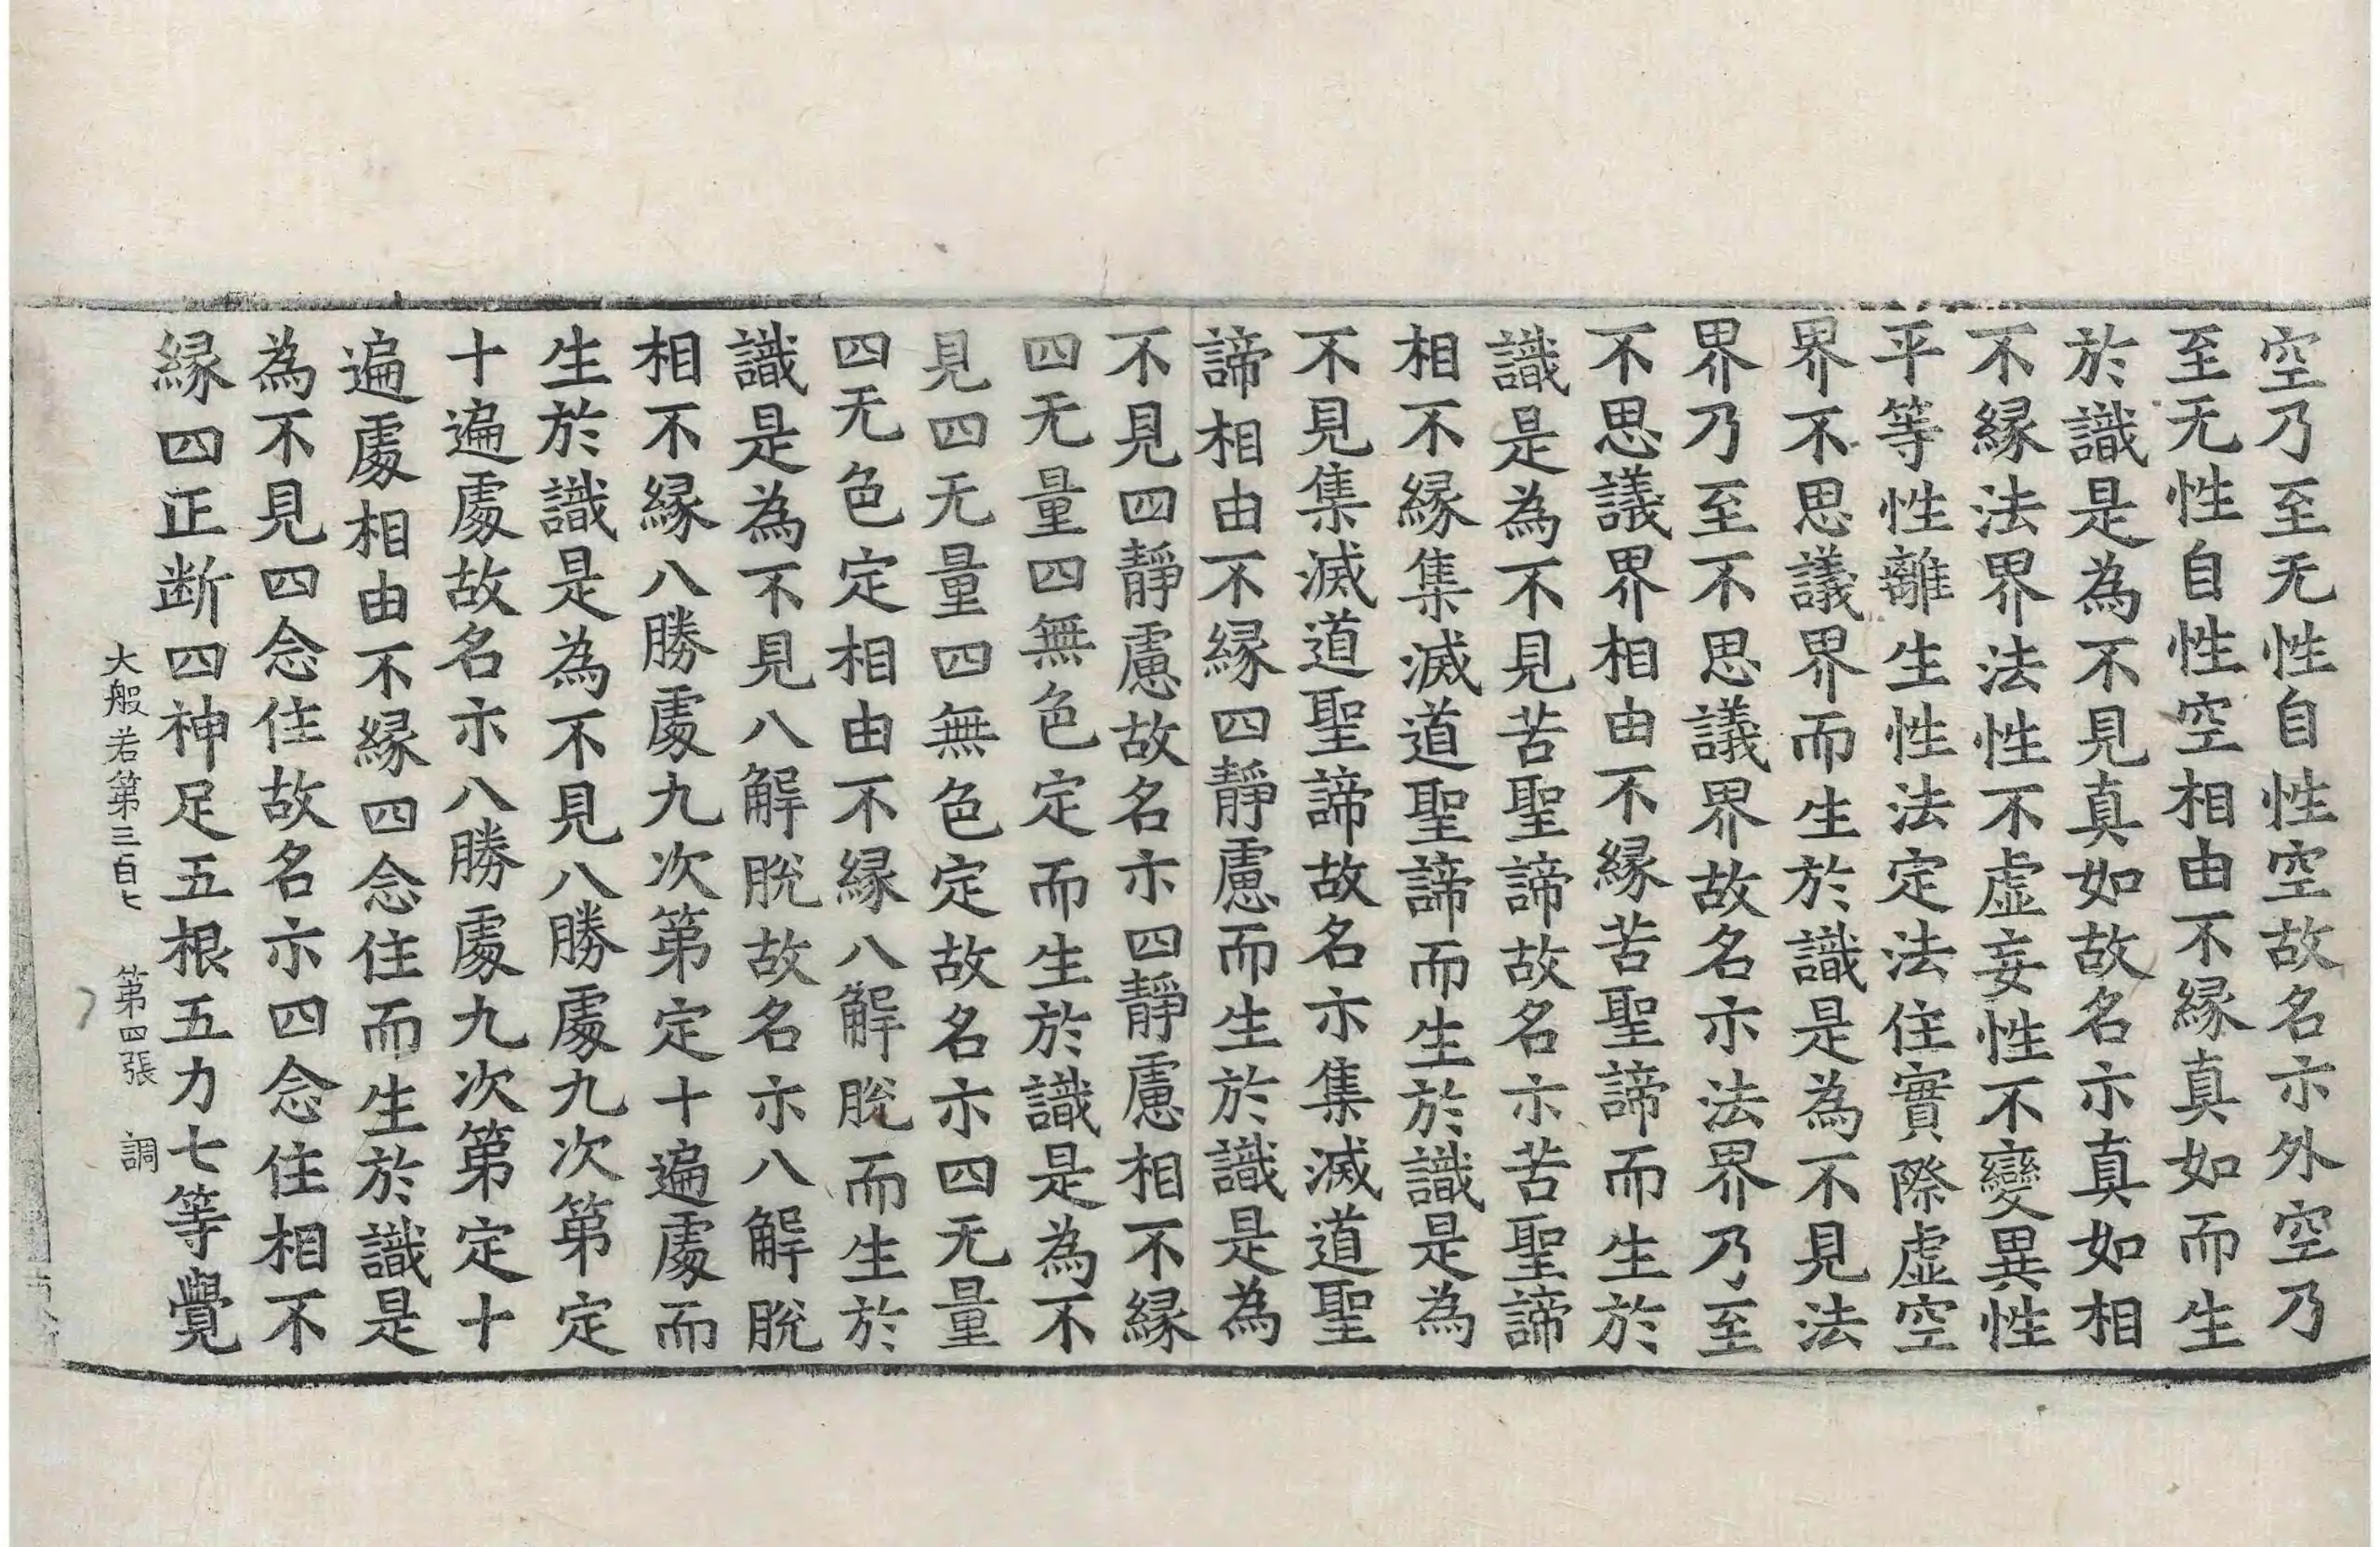 空乃至无性自性空故名亦外空乃
至无性自性空相由不緣真如而生
於識是為不見真如故名亦真如相
不緣法界法性不虛妄性不變異性
平等性離生性法定法住實際虛空
界不思議界而生於識是為不見法
界乃至不思議界故名亦法界乃至
不思議界相由不緣苦聖諦而生於
識是為不見苦聖諦故名亦苦聖諦
相不緣集滅道聖諦而生於識是為
不見集滅道聖諦故名亦集滅道聖
諦相由不緣四靜慮而生於識是為
不見四靜慮故名亦四靜慮相不緣
四无量四無色定而生於識是為不
見四无量四無色定故名亦四无量
四无色定相由不緣八解脫而生於
識是為不見八解脫故名亦八解脫
相不緣八勝處九次第定十遍處而
生於識是為不見八勝處九次第定
十遍處故名亦八勝處九次第定十
遍處相由不緣四念住而生於識是
為不見四念住故名亦四念住相不
緣四正断四神足五根五力七等覺
大般若第三百七 第四張 調